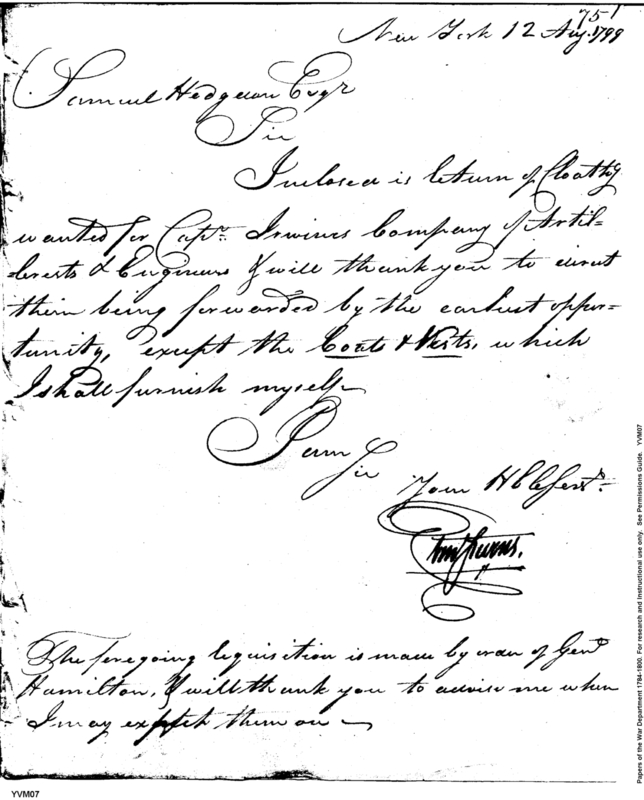 751
New York 12 Aug. 1799
Samuel Hodgdon Esqr
Sir
Inclosed is return of Cloathg
wanted for Captn. Irwines Company of Artil=
=lerests & Engineers & will thank you to direct
them being forwarded by the earliest oppor=
tunity, except the Coats & Vests, which
I shall furnish myself
I am
Sir
Your H Ob Servt.
The foregoing requisition is made by order of Genl
Hamilton, & will thank you to advise me when
I may expect them on
YVM07
Papers of the War Department 1784-1800. For research and instructional use only. See Permissions Guide. YVM07